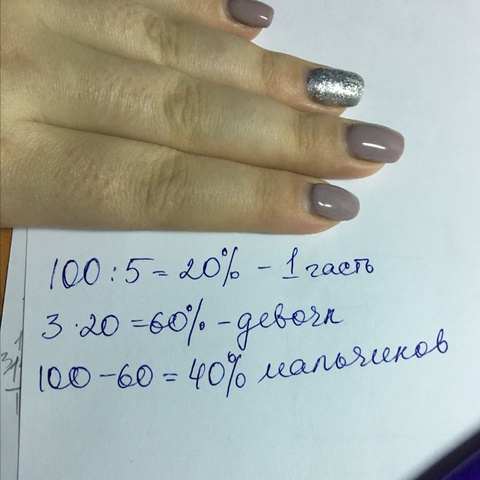 100 : 5 = 20% - 1 часть
3 · 20 = 60% - девочк
100 - 60 = 40% мальчиков